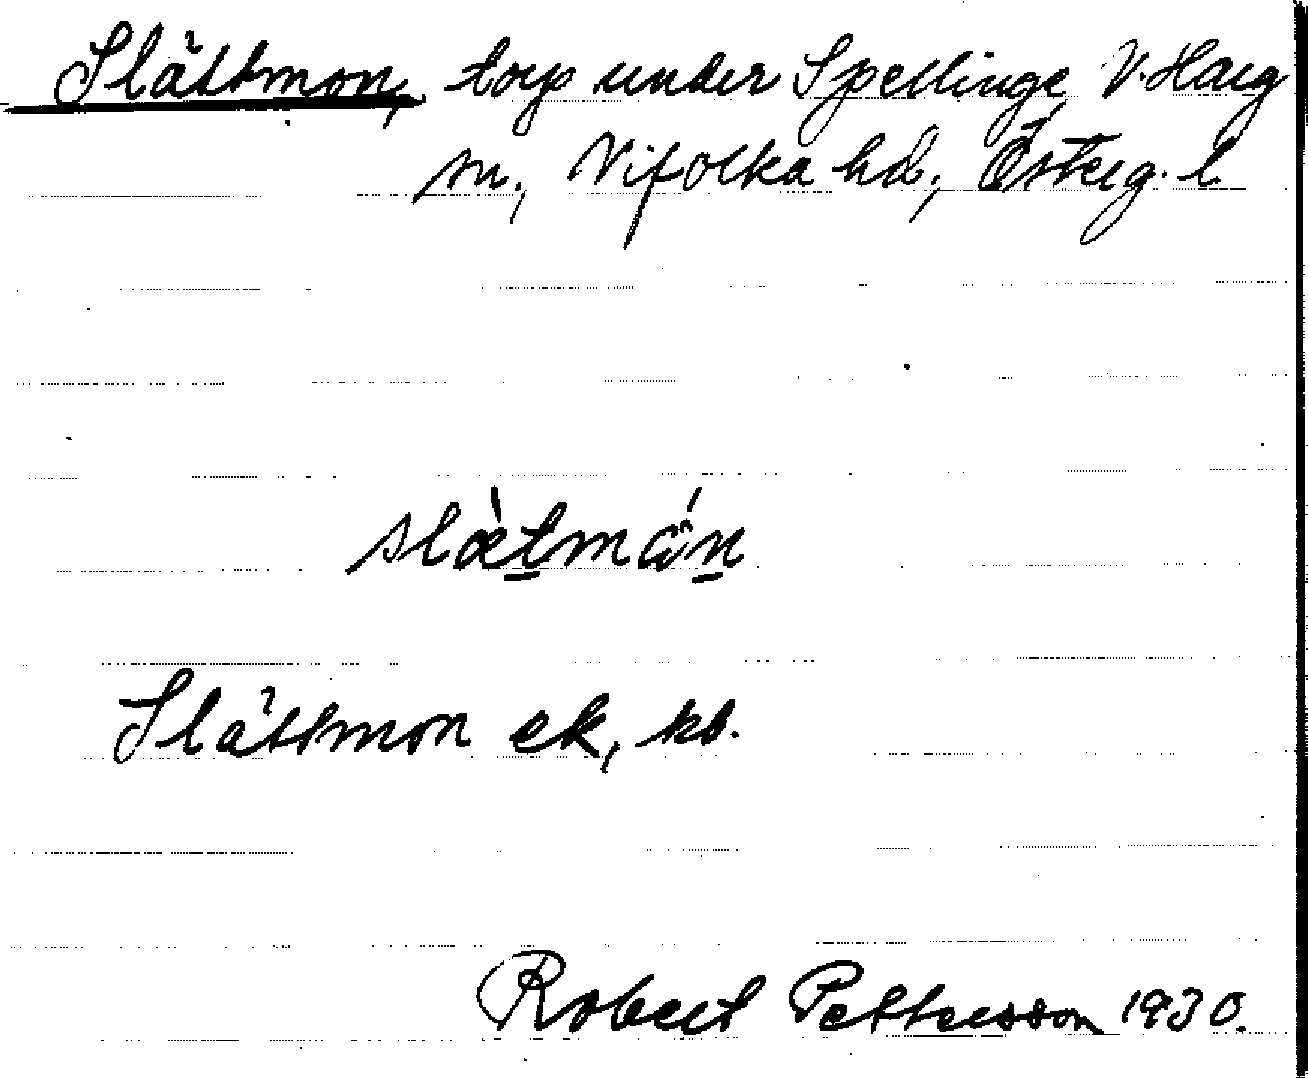 Slättmon, torp under Spellinge V. Harg
sn., Vifolka hd., Österg. l
slæ̀tmǻn
Slättmon ek, kb.
Robert Pettersson 1930.